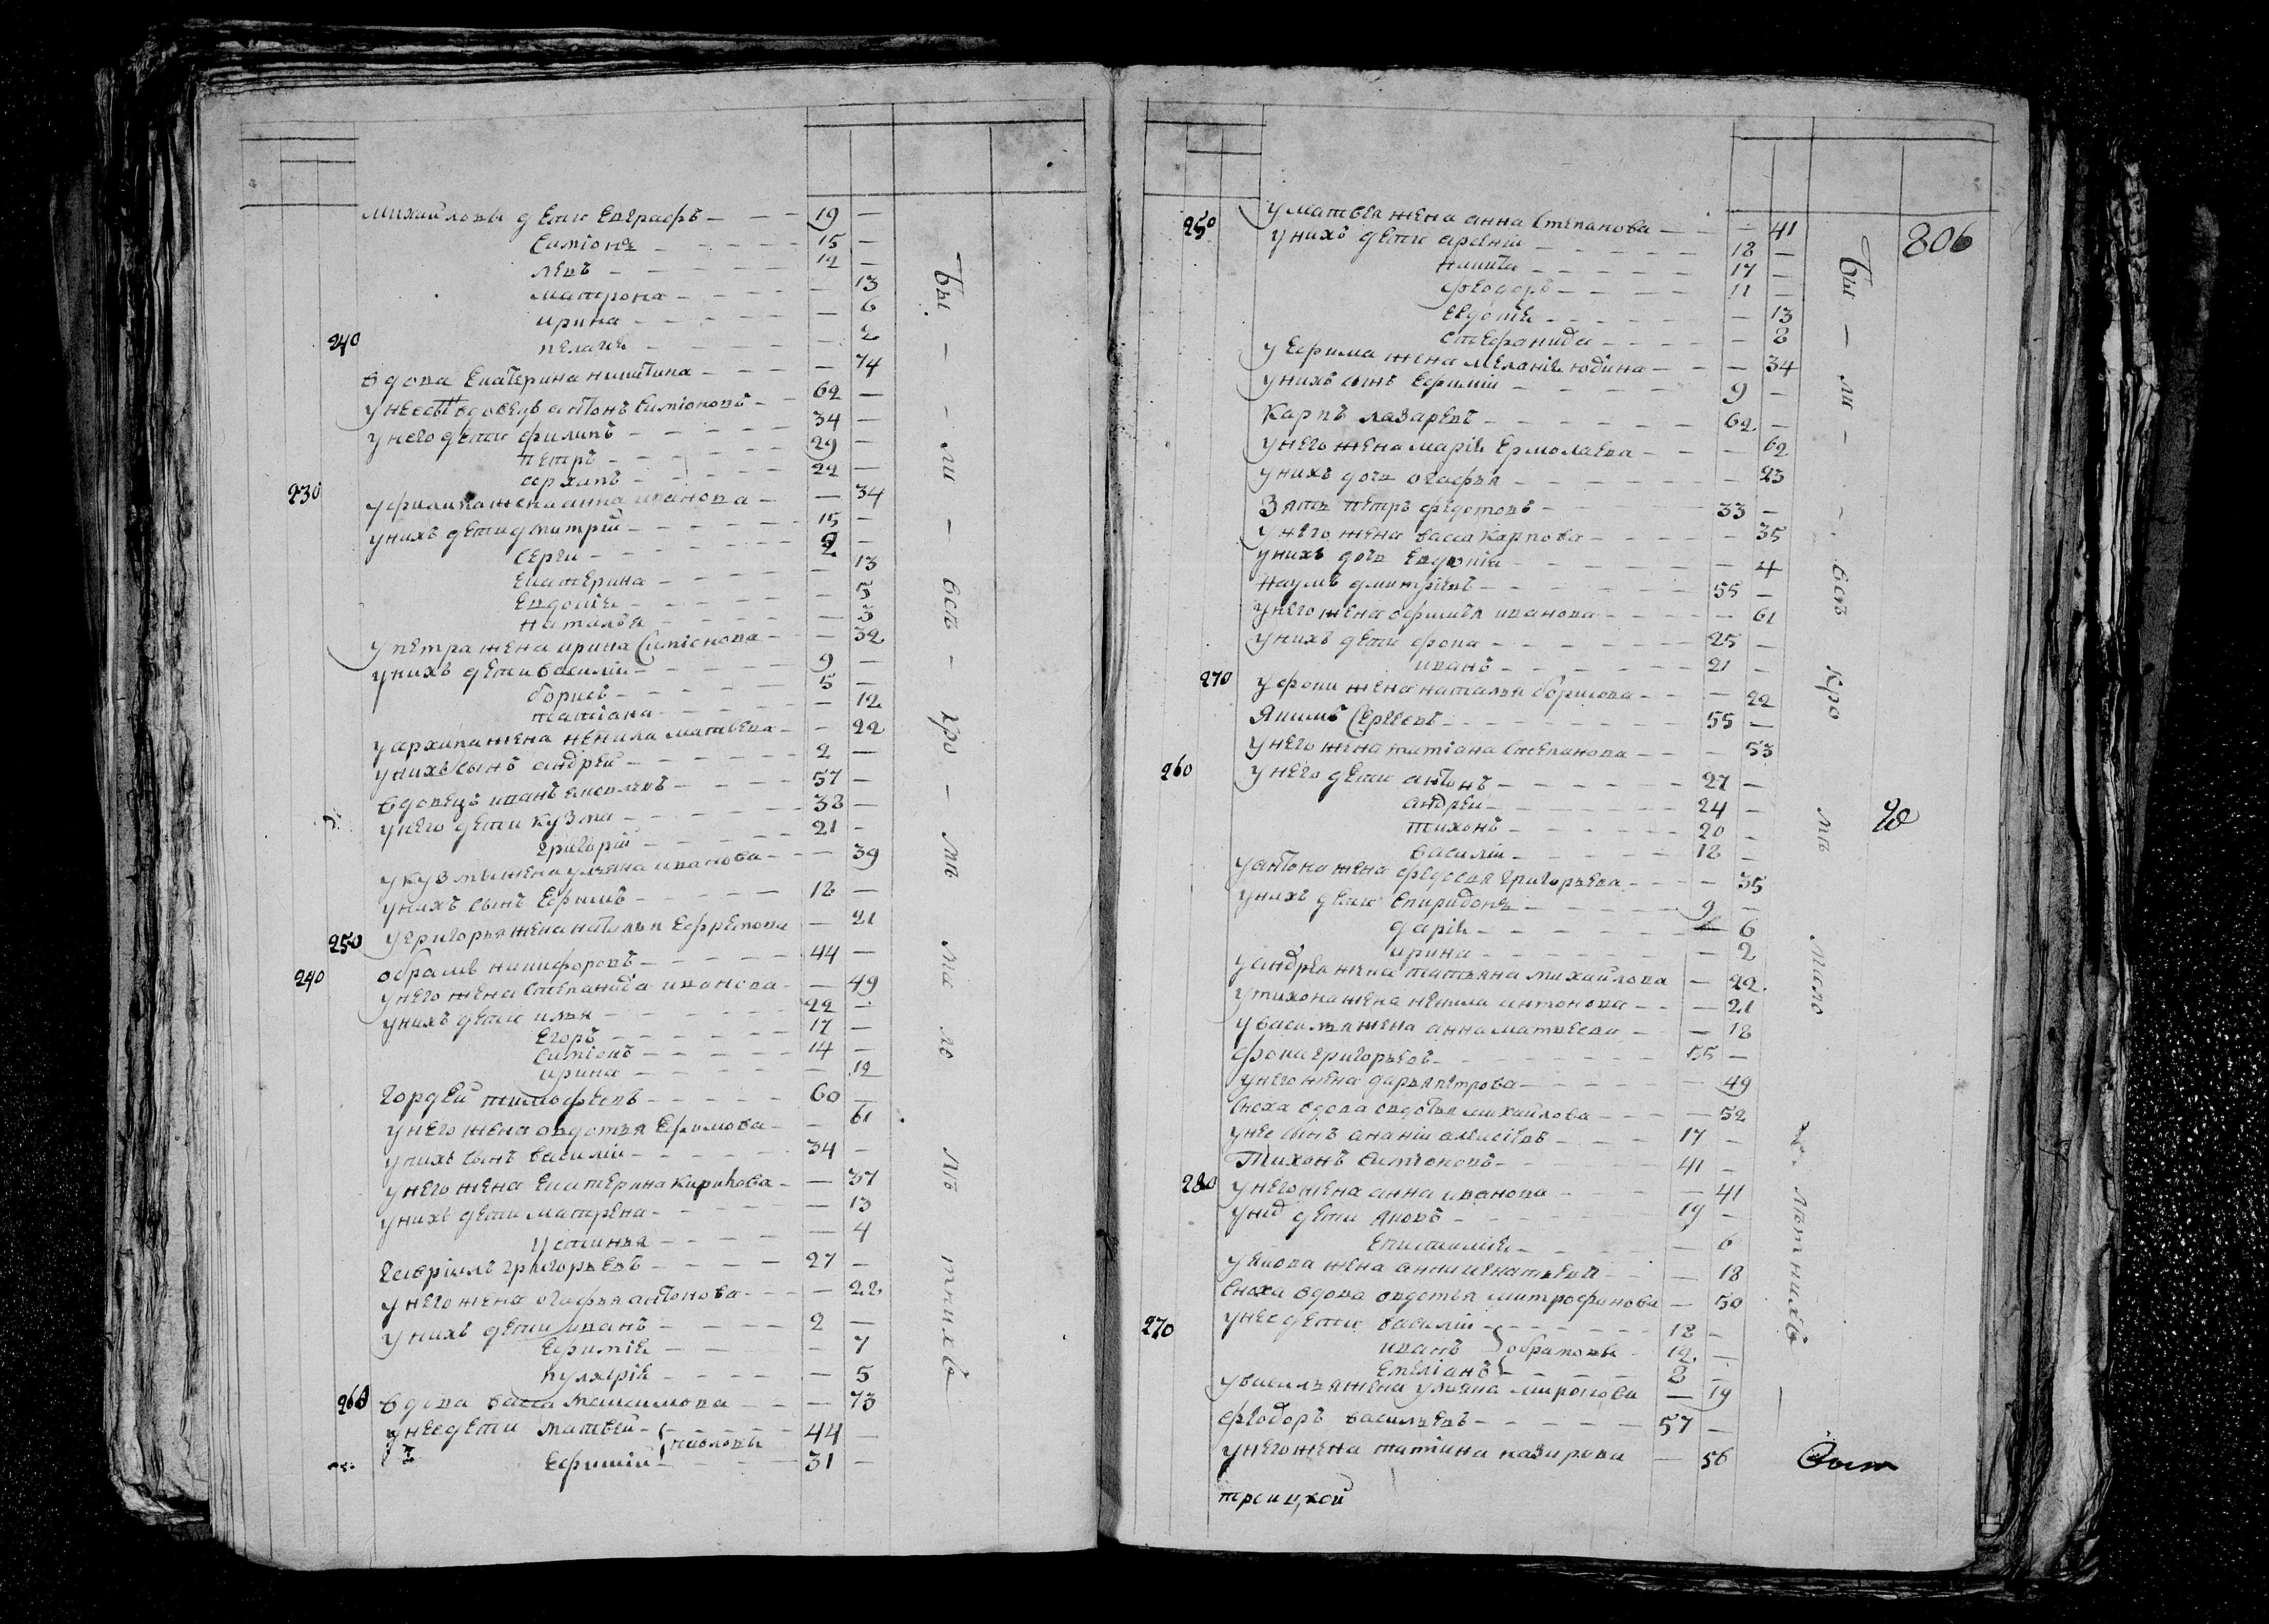 михайловы дети Евграфъ 19 —
Симіонъ 15 —
левъ 12 —
матрона — 13
ирина — 6
240 пелагіѣ — 2
вдова Екатерина никитина — 74
у нее сынъ вдовецъ антонъ Симіоновъ 62 —
у него дети филипъ 34 —
петръ 29 —
архипъ 22 —
230 у филипа жена анна иванова — 34
у нихъ дети дмитрій 15 —
Серги
Екатерина — 13
Евдокіѣ — 5
наталья — 3
у петра жена ирина Симіонова — 32
у нихъ дети василіи 9 —
борисъ 5 —
татіана — 12
у архипа жена ненила матвева — 22
у нихъ сынъ андрей 2 —
вдовецъ иванъ яковлевъ 57 —
у него дети кузма 38 —
григорій 21 —
у кузмы жена ульяна иванова — 39
у нихъ сынъ Ефимъ 18 —
250 у григорья жена наталья Ефремова — 21
обрамъ никифоровъ 44 —
240 у него жена Степанида иванова — 49
у нихъ дети илья 22 —
Егоръ 17 —
Симіонъ 14 —
ирина — 12
Гордей тимофеевъ 60 —
у него жена овдотья Ефимова — 61
у нихъ сынъ василіи 34 —
у него жена Екатерина Кирилова — 37
у нихъ дети матрена — 13
устинья — 4
Гавріилъ григорьевъ 27 —
у него жена огафья антонова — 22
у нихъ дети иванъ 2 —
Ефиміѣ — 7
пулхеріѣ — 5
260 вдова васса максимова — 73
у нее дети матвей 44 —
павловы
Ефимій 31 —
Бы — — ли — всѣ — кро — мѣ ма ло лѣ тнихъ
806
250 у матвея жена анна Степанова — 41
у нихъ дети арсеніи 18 —
никита 17 —
феодоръ 11 —
Евдокіѣ — 13
стефанида — 8
у Ефима жена меланіѣ юдина — 34
у нихъ сынъ Ефиміи 9 —
Карпъ лазаревъ 62 —
у него жена маріѣ Ермолаева — 62
у нихъ дочь огафья — 23
Зять петръ федотовъ 33 —
у него жена васса Карпова — 35
у нихъ дочь Евдокіѣ — 4
наумъ дмитріевъ 55 —
у него жена офимья иванова — 61
у нихъ дети фока 25 —
иванъ 21 —
270 у фоки жена наталья борисова — 22
Якимъ Сергеевъ 55 —
у него жена татіана Степанова — 53
260 у него дети антонъ 27 —
андреи 24 —
тихонъ 20 —
василіи 18 —
у антона жена федосья григорьева — 35
у нихъ дети Спиридонъ 9 —
даріѣ — 6
ирина — 2
у андрея жена татьяна михайлова — 22
у тихона жена ненила антонова — 21
у василья жена анна матвеева — 18
фока григорьевъ 55 —
у него жена дарья петрова — 49
Сноха вдова овдотья михайлова — 52
у нее сынъ ананіи алексіевъ 17 —
Тихонъ Симіоновъ 41 —
280 у него жена анна иванова — 41
у нихъ дети яковъ 19 —
Епистиміѣ — 6
у якова жена анна игнатьева — 18
Сноха вдова овдотья митрофанова — 50
270 у нее дети василіи 18 —
иванъ обрамовы 12 —
Емеліанъ 8 —
у василья жена ульяна миронова — 19
феодоръ васильевъ 57 —
у него жена татіана назарова — 56
троицкой
Бы — ли — всѣ кро мѣ мало лѣтнихъ